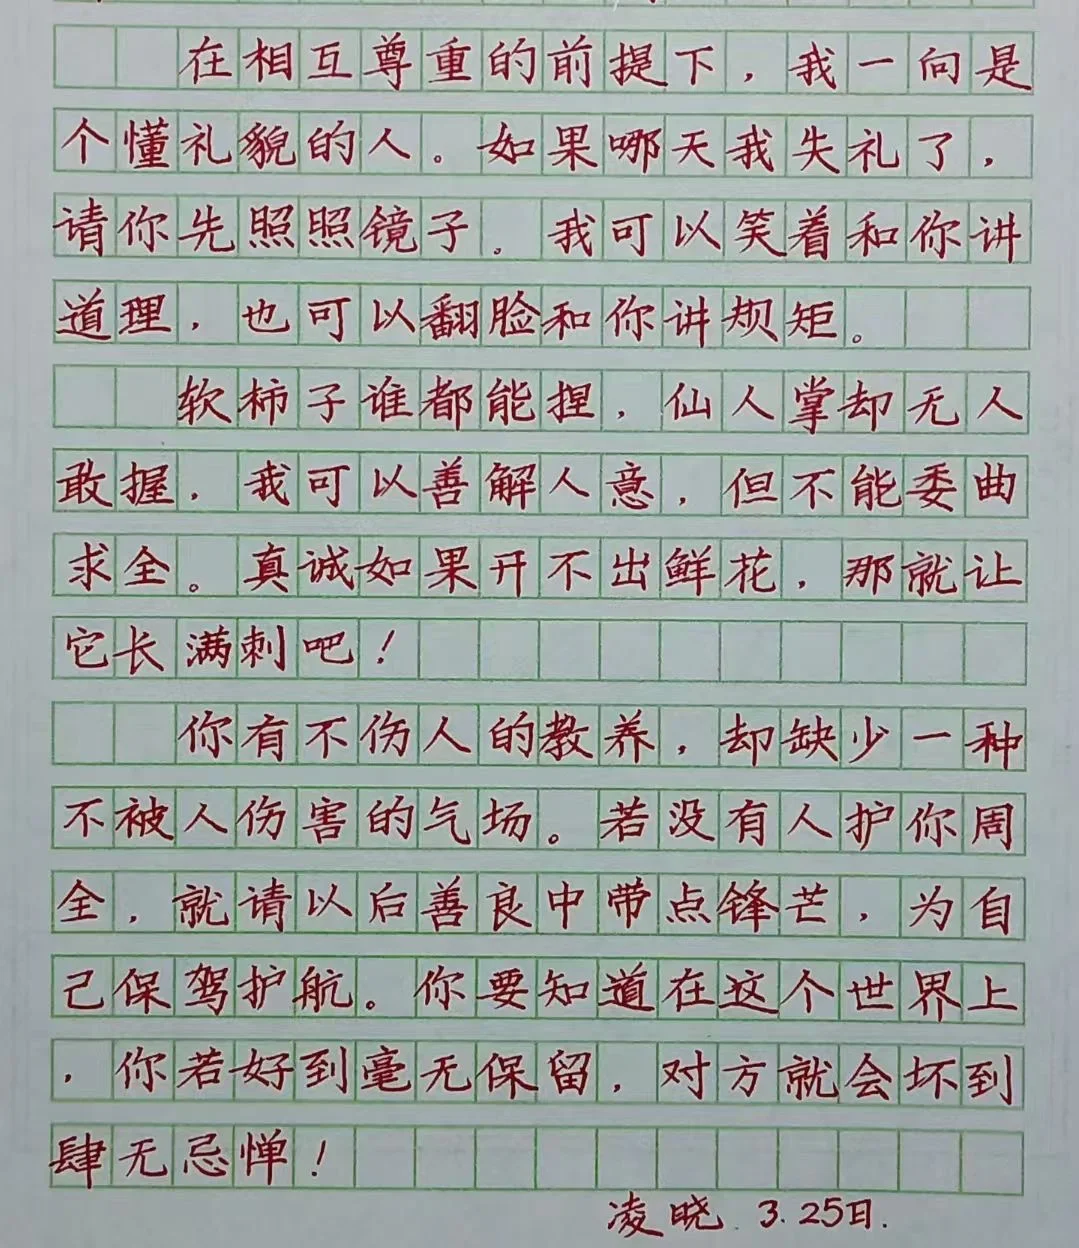 在相互尊重的前提下，我一向是
个懂礼貌的人。如果哪天我失礼了，
请你先照照镜子。我可以笑着和你讲
道理，也可以翻脸和你讲规矩。
软柿子谁都能捏，仙人掌却无人
敢握，我可以善解人意，但不能委曲
求全。真诚如果开不出鲜花，那就让
它长满刺吧！
你有不伤人的教养，却缺少一种
不被人伤害的气场。若没有人护你周
全，就请以后善良中带点锋芒，为自
己保驾护航。你要知道在这个世界上
，你若好到毫无保留，对方就会坏到
肆无忌惮！
凌晓.3.25日.